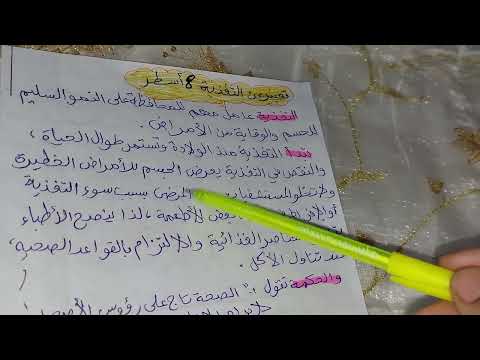 تعبير عن التغذية 8 أسطر
التغذية عامل مهم للمحافظة على النمو السليم
للجسم والوقاية من الأمراض.
تبدأ التغذية منذ الولادة وتستمر طوال الحياة،
والنقص في التغذية يعرض الجسم للأمراض الخطيرة
ولا تخلو المستشفيات المرضى بسبب سوء التغذية
الأطعمة، لذا ينصح الأطباء
الغذائية والالتزام بالقواعد الصحية،
عند تناول الأكل.
والحكمة تقول: "الصحة تاج على رؤوس